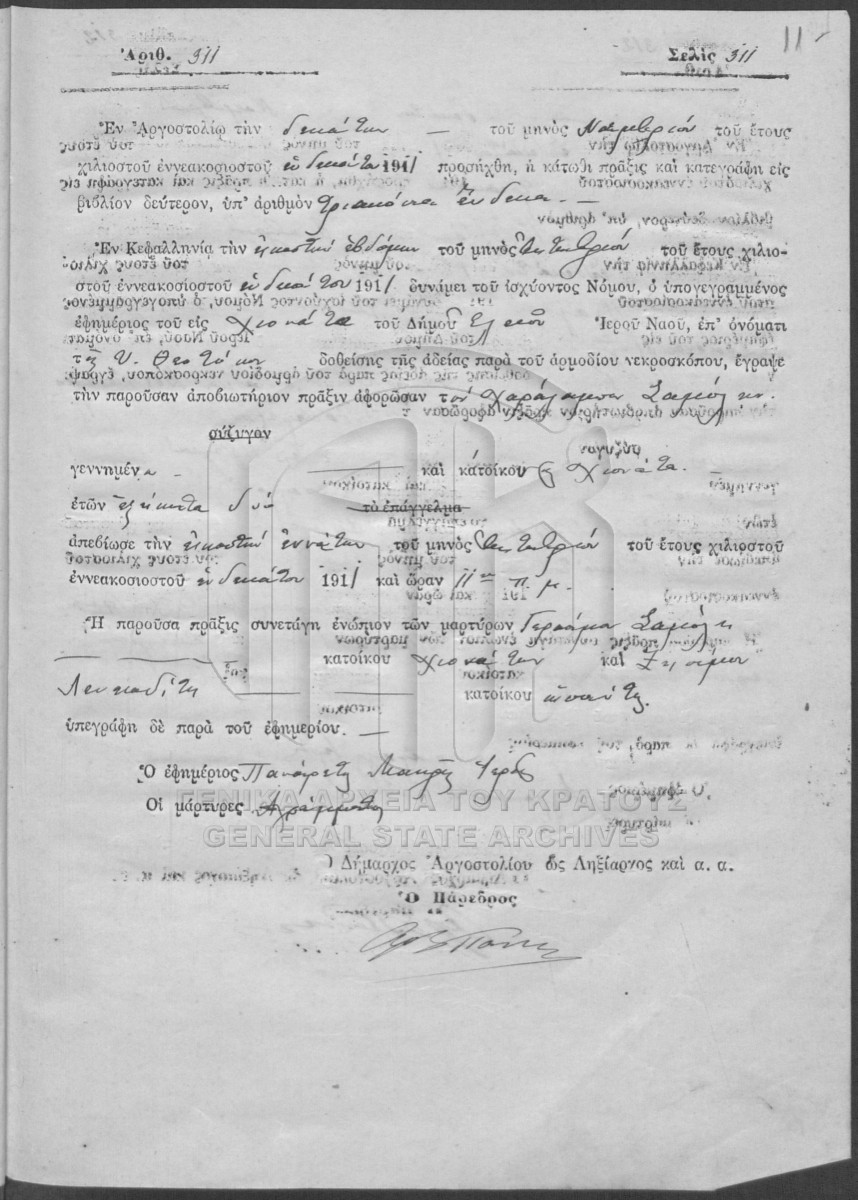 Ἀριθ. 311 Σελὶς 311
11
Ἐν Ἀργοστολίῳ τὴν δεκάτην τοῦ μηνὸς Νοεμβρίου τοῦ ἔτους
χιλιοστοῦ ἐννεακοσιοστοῦ ἑνδεκάτου 1911 προσήχθη, ἡ κάτωθι πρᾶξις καὶ κατεγράφη εἰς
βιβλίον δεύτερον, ὑπ' ἀριθμὸν τριακόσια ἕνδεκα. —
Ἐν Κεφαλληνίᾳ τὴν εἰκοστὴν ἑβδόμην τοῦ μηνὸς Ὀκτωβρίου τοῦ ἔτους χιλιο-
στοῦ ἐννεακοσιοστοῦ ἑνδεκάτου 1911 δυνάμει τοῦ ἰσχύοντος Νόμου, ὁ ὑπογεγραμμένος
ἐφημέριος τοῦ εἰς Χιονάτα τοῦ Δήμου Ἱεροῦ Ναοῦ, ἐπ' ὀνόματι
τῆς Ὑ. Θεοτόκου δοθείσης τῆς ἀδείας παρὰ τοῦ ἁρμοδίου νεκροσκόπου, ἔγραψε
τὴν παροῦσαν ἀποβιωτήριον πρᾶξιν ἀφορῶσαν τὸν Χαράλαμπον
σύζυγον
γεννημένα καὶ κατοίκου Χιονάτα. —
ἐτῶν ἑξήκοντα δύο τὸ ἐπάγγελμα
ἀπεβίωσε τὴν εἰκοστὴν ἐννάτην τοῦ μηνὸς Ὀκτωβρίου τοῦ ἔτους χιλιοστοῦ
ἐννεακοσιοστοῦ ἑνδεκάτου 1911 καὶ ὥραν 11ην π. μ.
Ἡ παροῦσα πρᾶξις συνετάγη ἐνώπιον τῶν μαρτύρων Γερασίμου
κατοίκου Χιονάτων καὶ
κατοίκου ὡσαύτως.
ὑπεγράφη δὲ παρὰ τοῦ ἐφημερίου. —
Ὁ ἐφημέριος Μακρῆς Ἱερεύς
Οἱ μάρτυρες Ἀγράμματοι
ΓΕΝΙΚΑ ΑΡΧΕΙΑ ΤΟΥ ΚΡΑΤΟΥΣ
GENERAL STATE ARCHIVES
Ὁ Δήμαρχος Ἀργοστολίου ὡς Ληξίαρχος καὶ α. α.
Ὁ Πάρεδρος